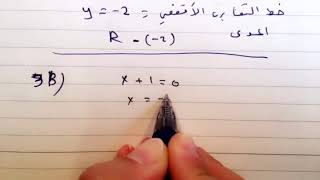 خط التقارب الأفقي = y = -2
المدى R - (-2)
3B) x + 1 = 0
x = -